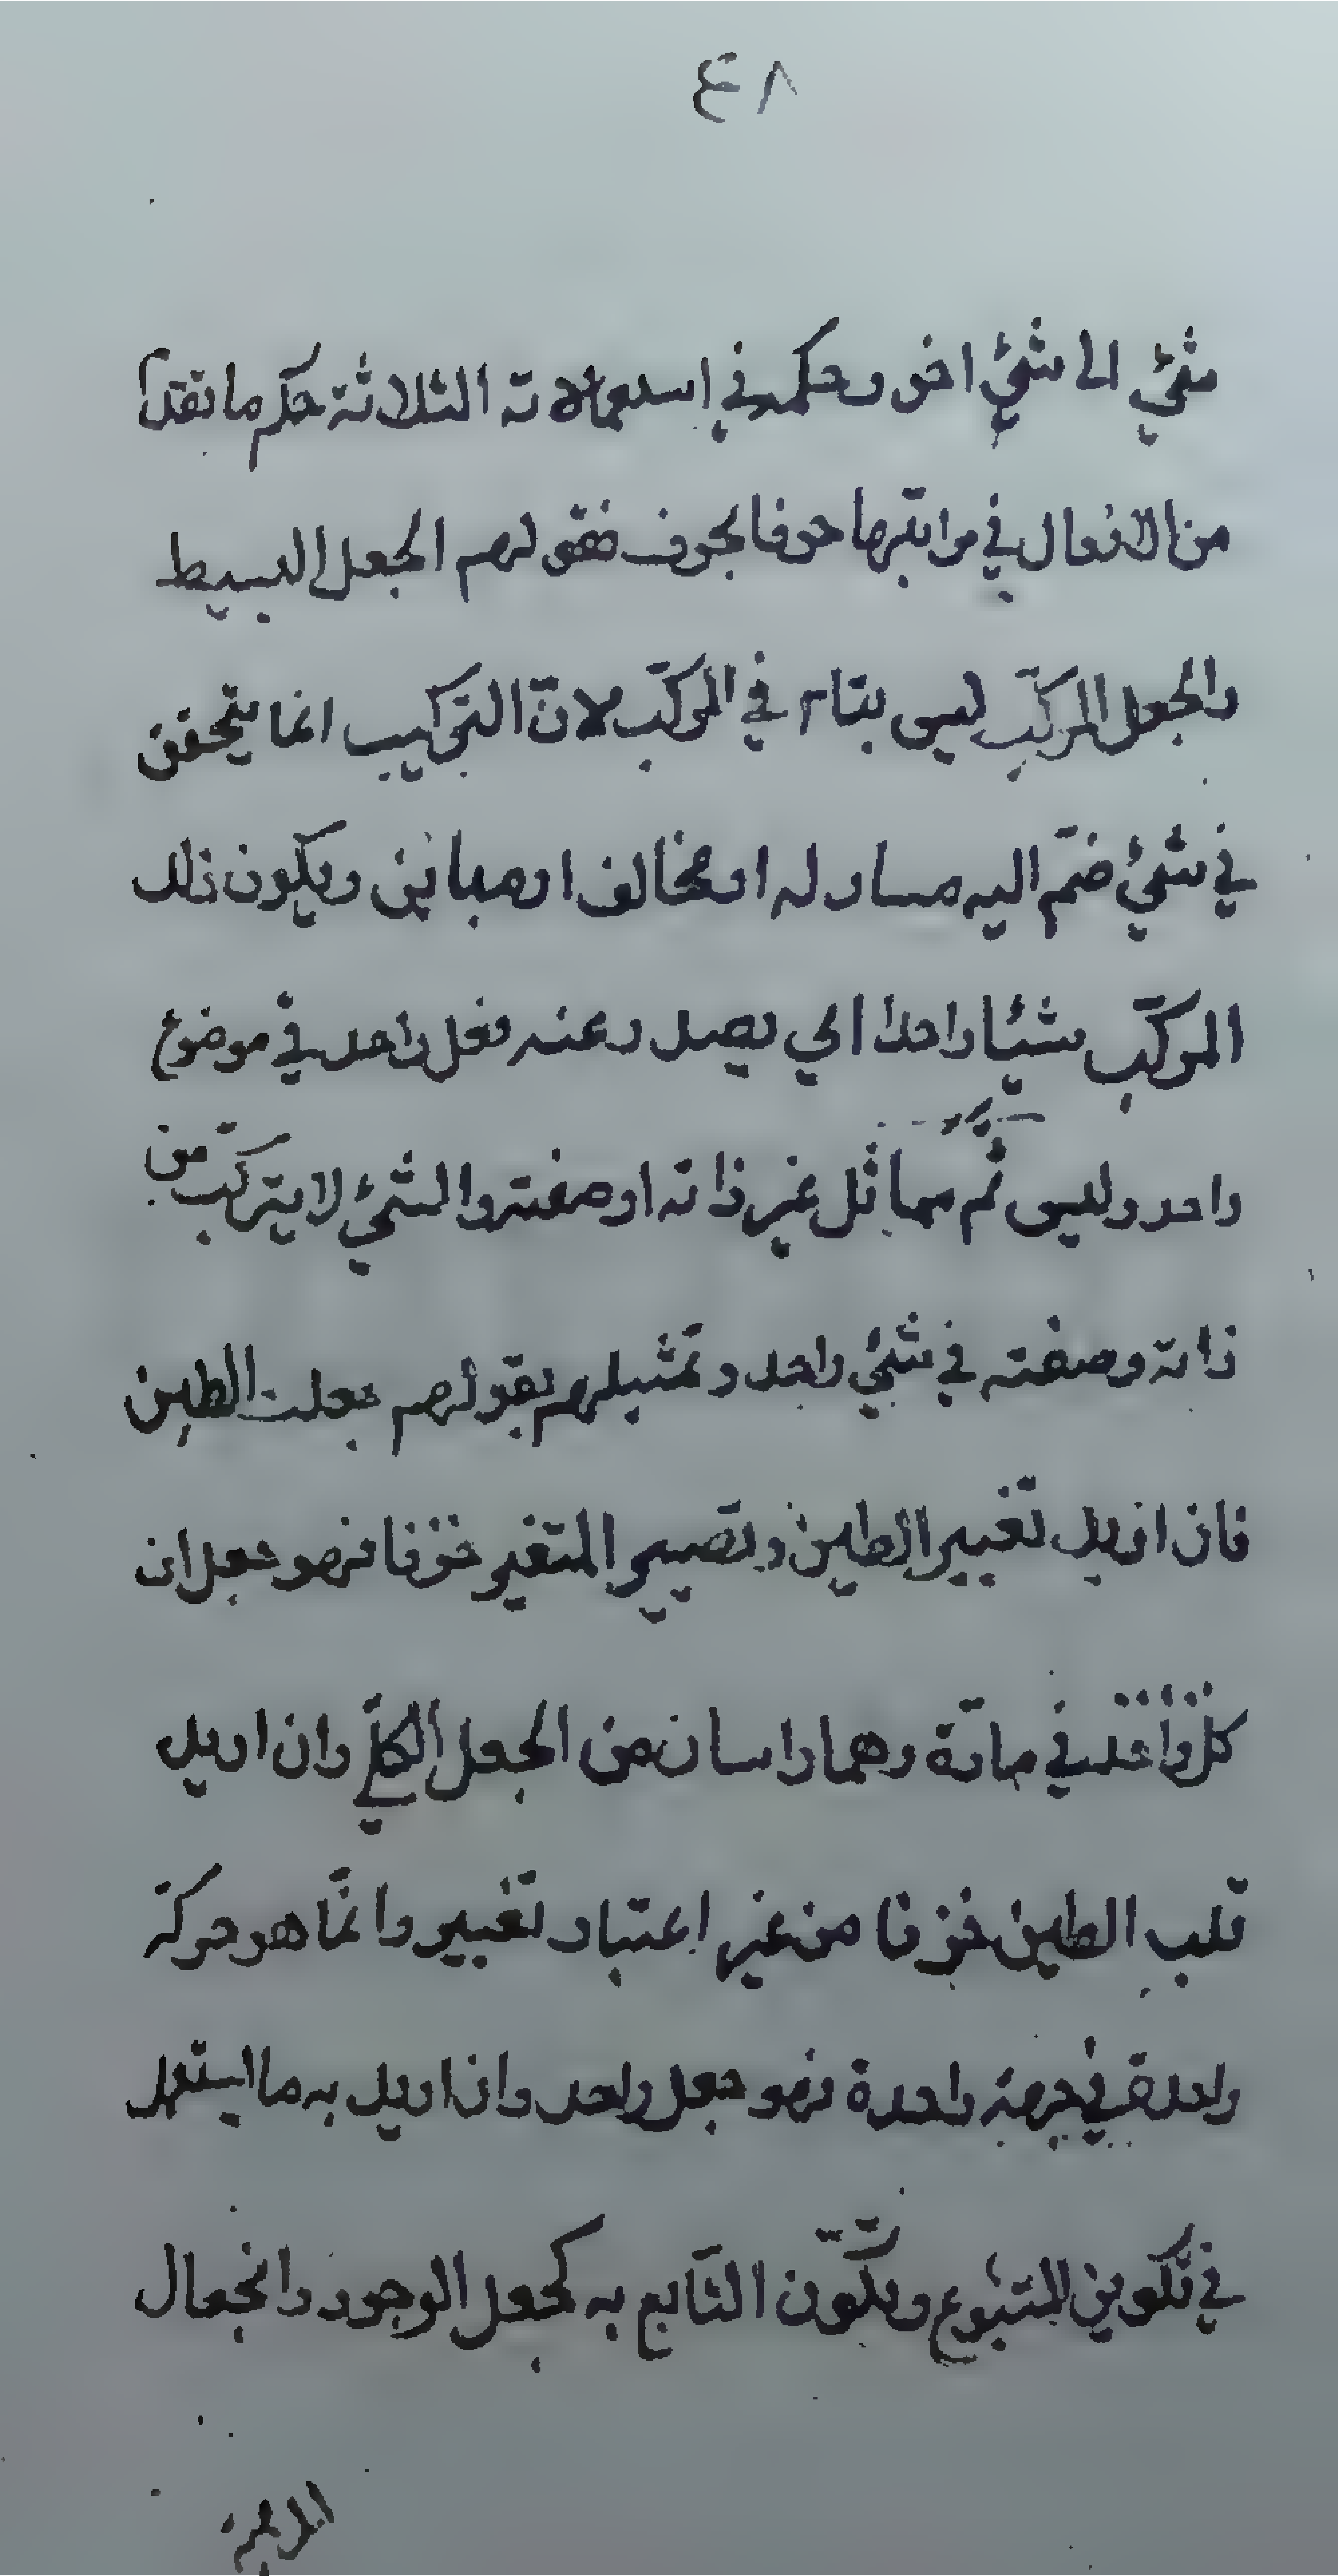 ٤٨
شيئ الى شيئ اخر وحكمه في إستعمالاته الثلاثة حكم ما تقدم
من الافعال في مراتبها حرفا بحرف فقولهم الجعل البسيط
والجعل المركّب ليس بتام في المركّب لانّ التركيب انما يتحقق
في شيئ ضمّ اليه مساو له او مخالف او مباين ويكون ذلك
المركّب شيئا واحدا اي يصدر عنه فعل واحد في موضوع
واحد وليس ثم مماثل غير ذاته او صفته والشيئ لا يتركب من
ذاته وصفته في شيئ واحد وتمثيلهم بقولهم جعلت الطين
فان اريد تغيير الطين وتصيير المتغير خزفا فهو جعلان
كل واحد في مادّة وهما راسان من الجعل الكلّي وان اريد
قلب الطين خزفا من غير اعتبار تغيير وانّما هو حركة
واحدة في جهة واحدة فهو جعل واحد وان اريد به ما يستعمل
في تكوين المتبوع وبتكوّن التابع به كجعل الوجود وانجعال